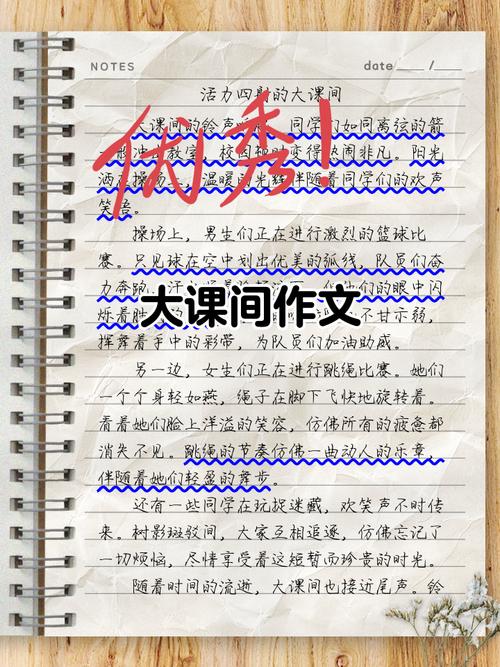 NOTES
date /
活力四射的大课间
大课间的铃声 同学们如同离弦的箭
教室,校园 变得热闹非凡。阳光
洒在操场上,温暖的光辉伴随着同学们的欢声
笑语。
优秀!
操场上,男生们正在进行激烈的篮球比
赛。只见球在空中划出优美的弧线,队员们奋
力奔跑,汗 他们的眼中闪
烁着 不甘示弱,
大课间作文
挥舞着手中的彩带,为队员们加油助威。
另一边,女生们正在进行跳绳比赛。她们
一个个身轻如燕,绳子在脚下飞快地旋转着。
看着她们脸上洋溢的笑容,仿佛所有的疲惫都
消失不见。跳绳的节奏仿佛一曲动人的乐章,
伴随着她们轻盈的舞步。
还有一些同学在玩捉迷藏,欢笑声不时传
来。树影斑驳间,大家互相追逐,仿佛忘记了
一切烦恼,尽情享受着这短暂而珍贵的时光。
随着时间的流逝,大课间也接近尾声。铃